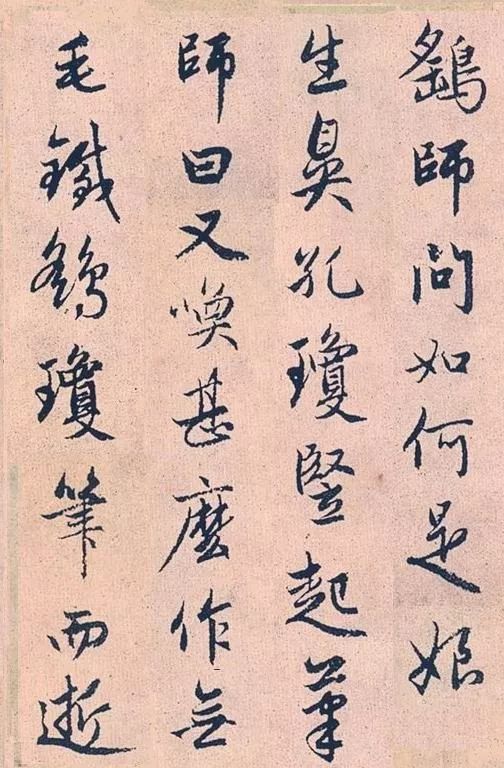 鷂師問如何是娘
生鼻孔瓊豎起筆
師曰又喚甚麼作無
毛鐵鷂瓊筆而逝